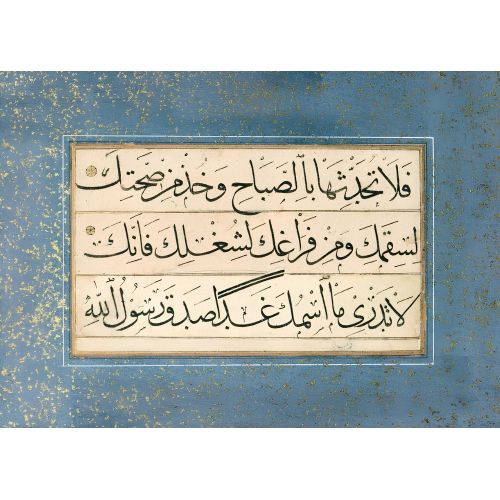 فلا تحدثها بالصباح وخذ من صحتك
لسقمك ومن فراغك لشغلك فانك
لا تدرى ما اسمك غدا صدق رسول الله